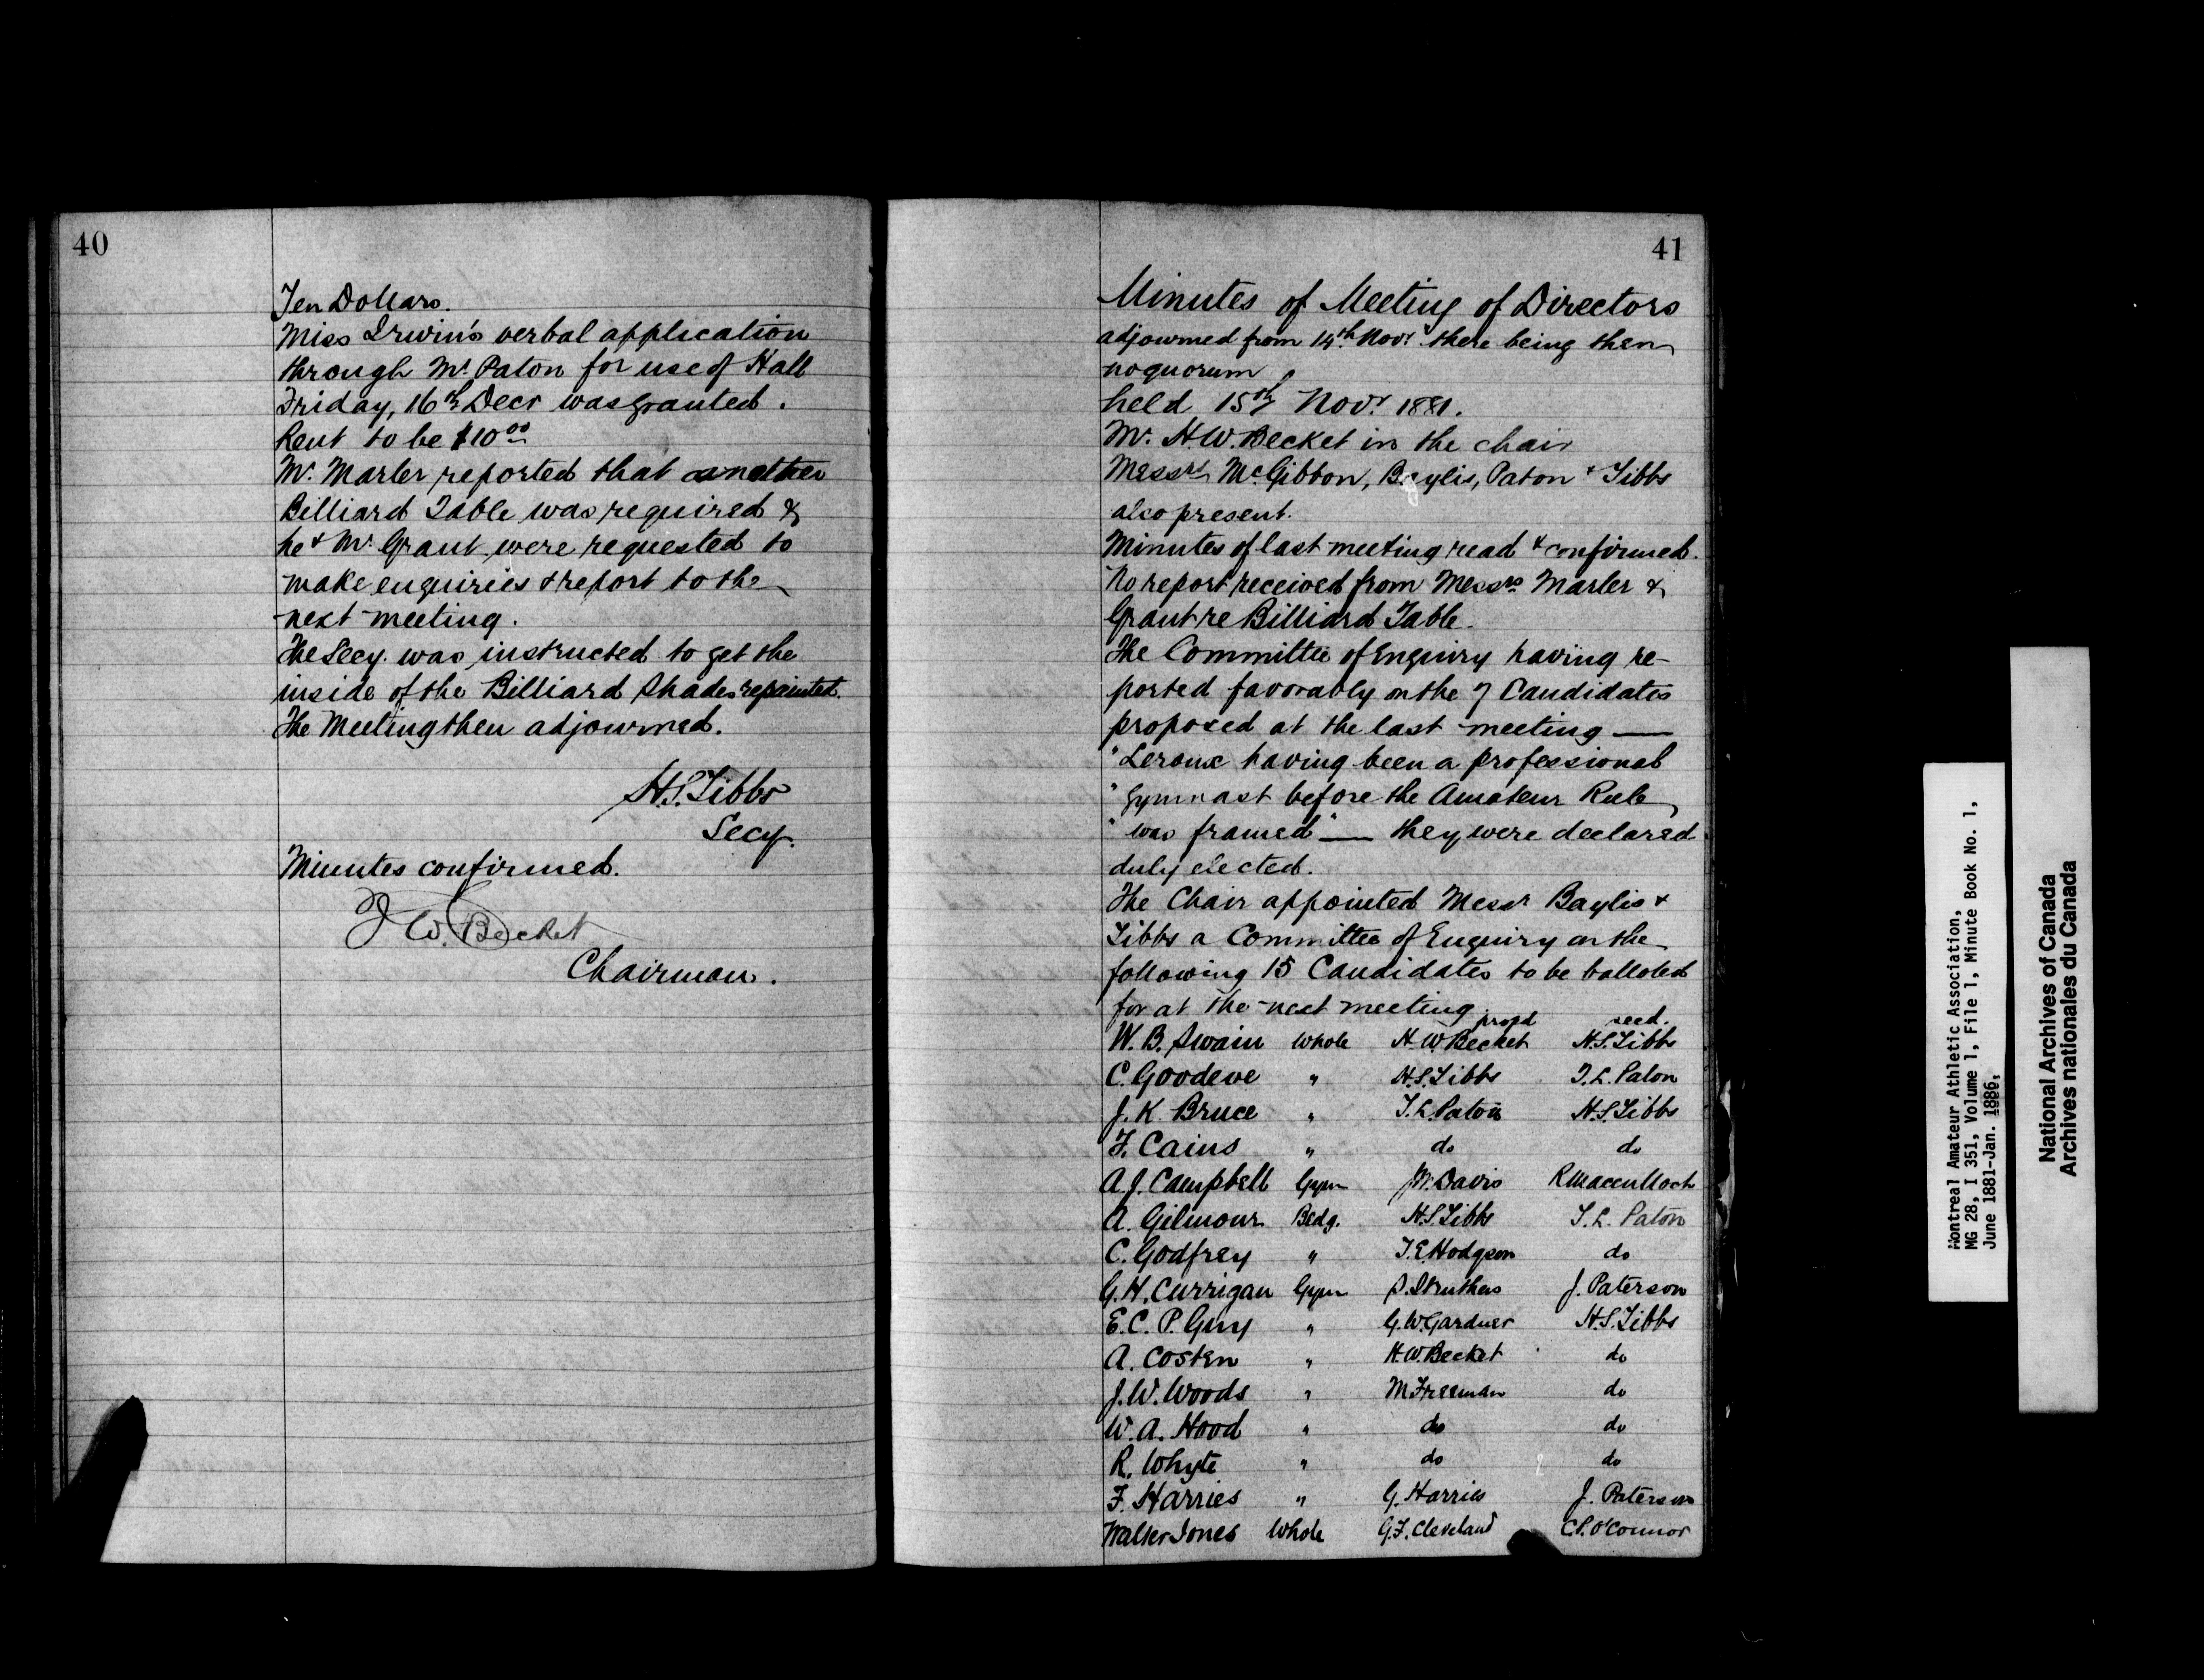 40
Ten Dollars.
Miss Irwin's verbal application
through Mr. Paton for use of Hall
Friday, 16th Decr was granted.
Rent to be $10 00
Mr. Marler reported that another
Billiard Table was required &
he & Mr. Grant were requested to
make enquiries & report to the
next meeting.
The Secy. was instructed to get the
inside of the Billiard Shades repainted.
The Meeting then adjourned.
H.S. Tibbs
Secy.
Minutes confirmed.
W. Becket
Chairman.
41
Minutes of Meeting of Directors
adjourned from 14th Novr. there being then
no quorum
held 15th Novr. 1881.
Mr. H.W. Becket in the chair
Messrs McGibbon, Baylis, Paton & Tibbs
also present.
Minutes of last meeting read & confirmed.
No report received from Messrs Marler &
Grant re Billiard Table.
The Committee of Enquiry having re-
ported favorably on the 7 Candidates
proposed at the last meeting —
"Leroux having been a professional
"gymnast before the Amateur Rule
"was framed" — they were declared
duly elected.
The Chair appointed Messrs Baylis &
Tibbs a Committee of Enquiry on the
following 15 Candidates to be balloted
for at the next meeting.
propd secd.
W. B. Swain Whole H.W. Becket H.S. Tibbs
C. Goodeve " H.S. Tibbs T.L. Paton
J. K. Bruce " T.L. Paton H.S. Tibbs
F. Cains " do do
A. J. Campbell Gym J.W. Davis R Macculloch
A. Gilmour Bldg. H.S. Tibbs T.L. Paton
C. Godfrey " T.E. Hodgson do
G. H. Currigan Gym S. Struthers J. Paterson
E. C. P. Guy " G.W. Gardner H.S. Tibbs
A. Costen " H.W. Becket do
J. W. Woods " M Freeman do
W. A. Hood " do do
R. Whyte " do do
F. Harries " G. Harries J. Paterson
Walter Jones Whole G.F. Cleveland C.P. O'Connor
Montreal Amateur Athletic Association,
MG 28, I 351, Volume 1, File 1, Minute Book No. 1,
June 1881-Jan. 1886.
National Archives of Canada
Archives nationales du Canada